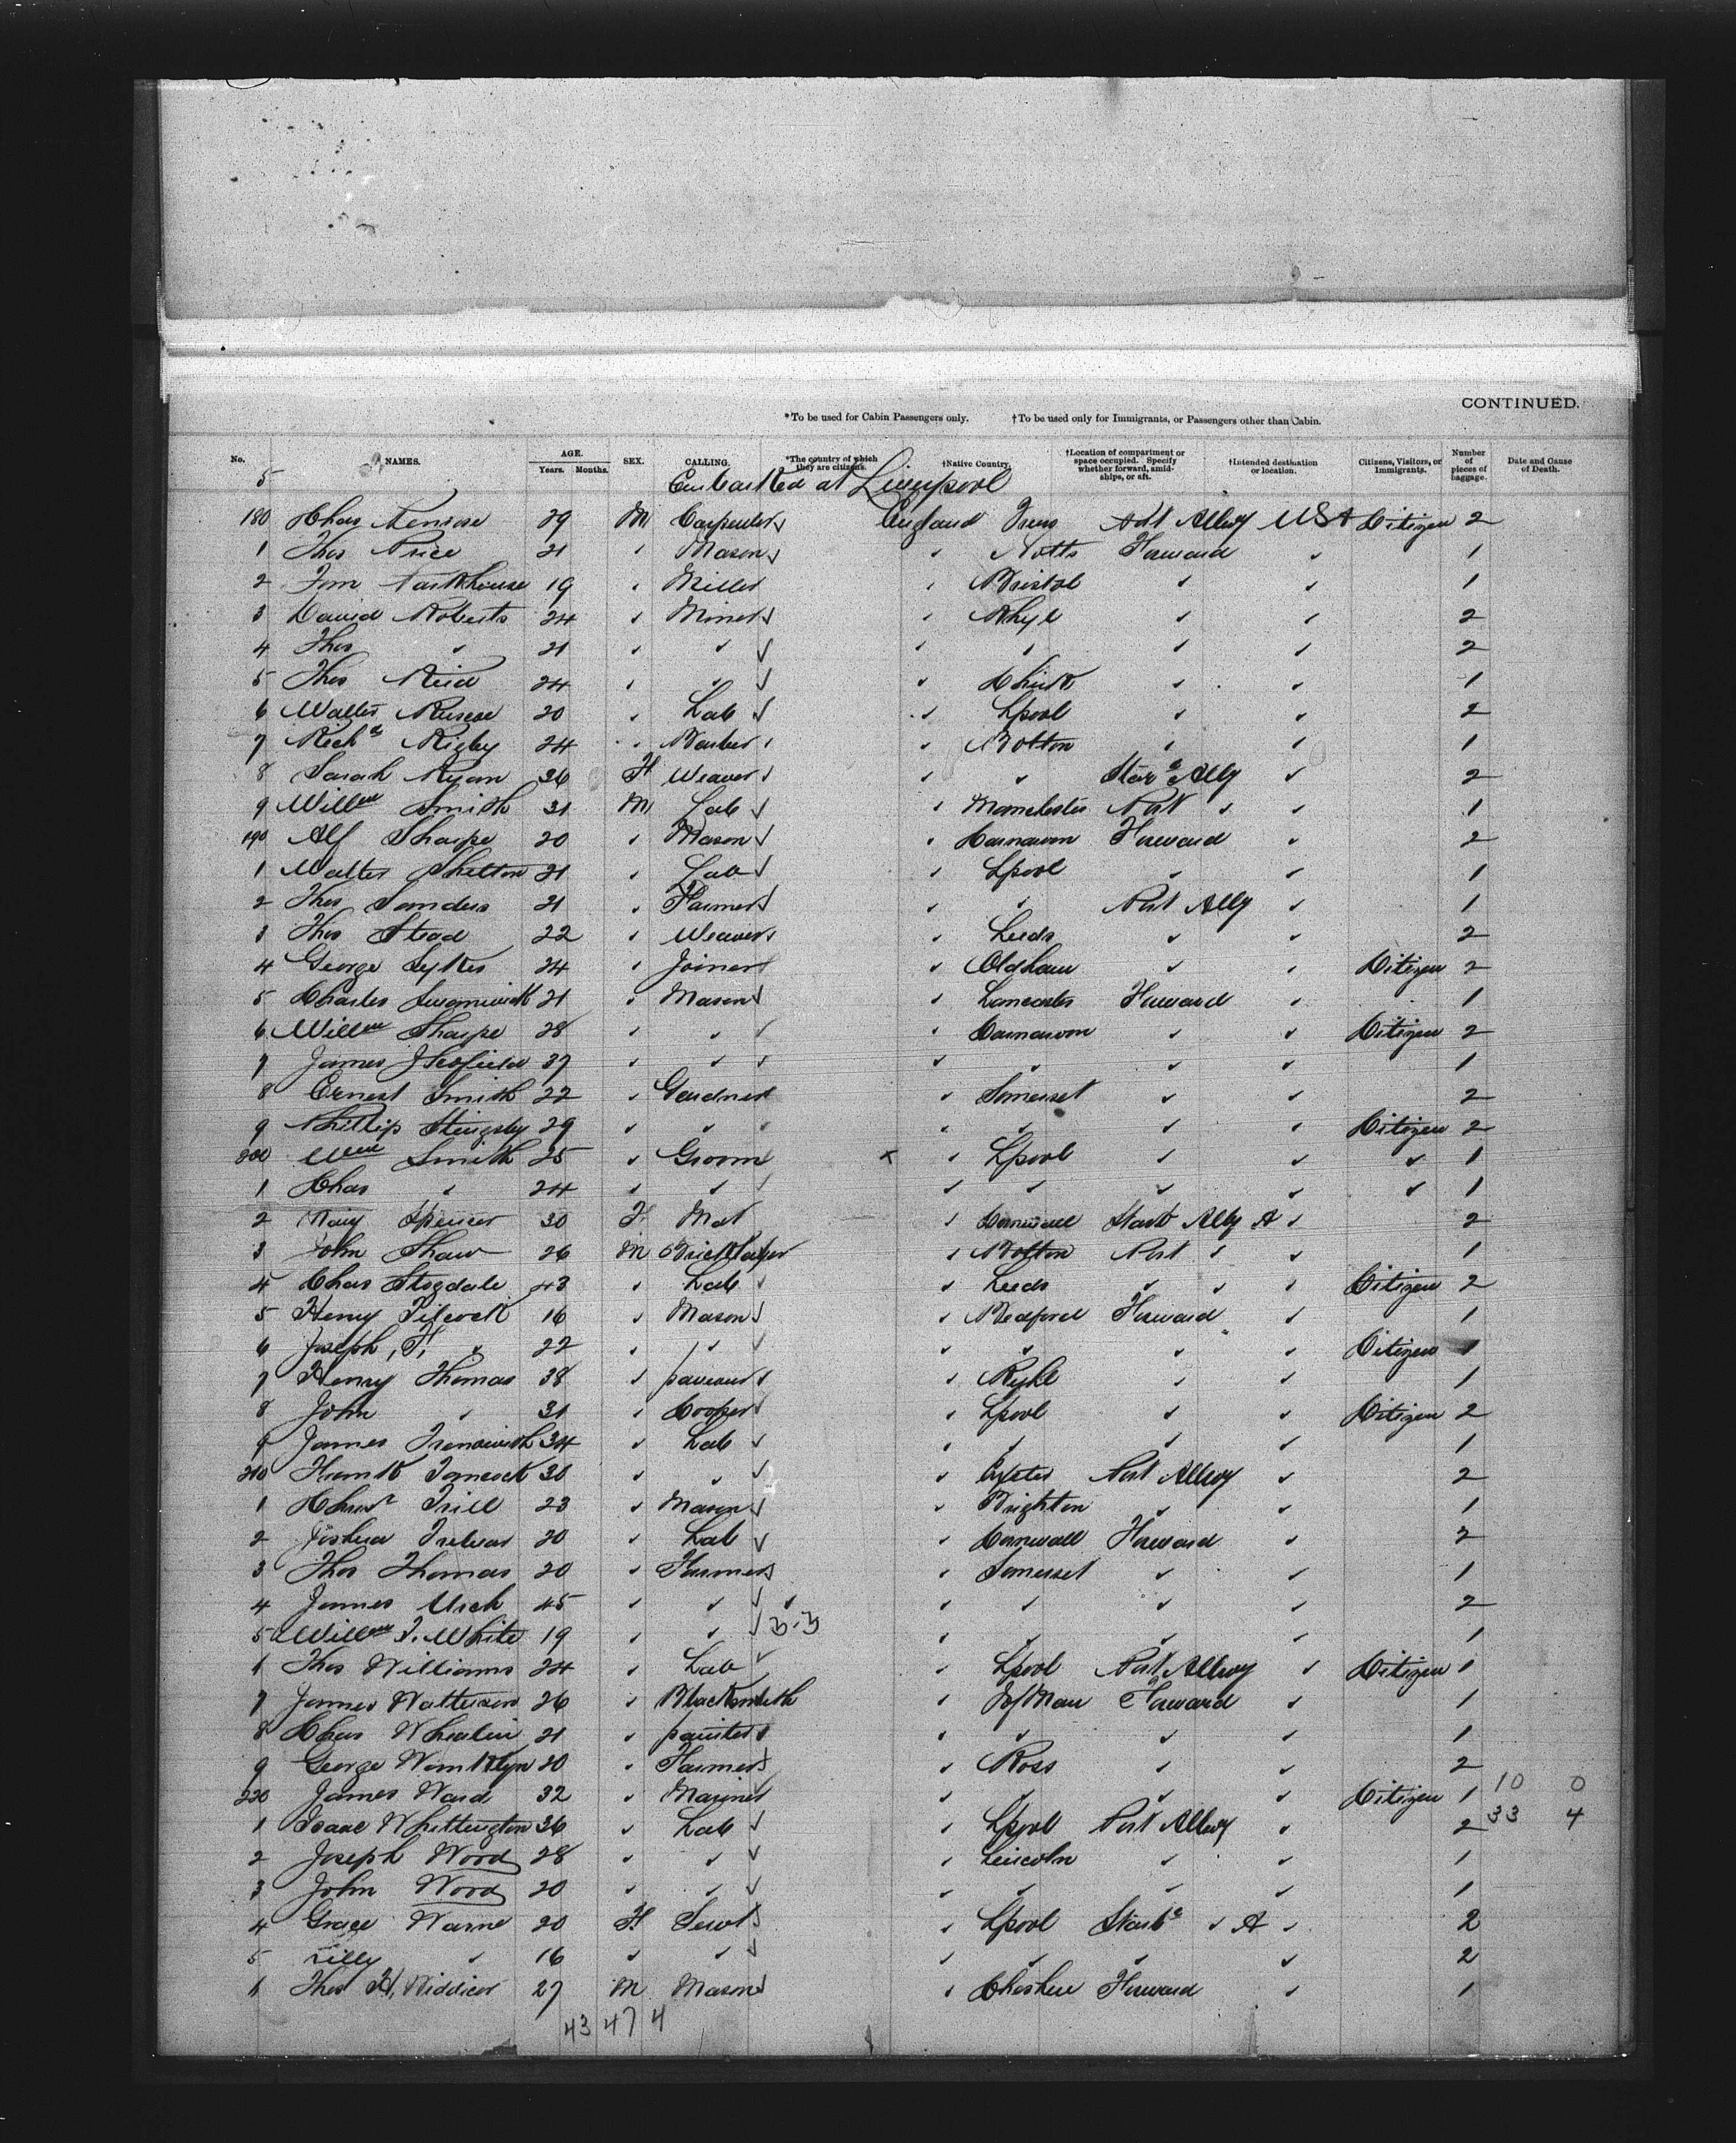 CONTINUED.
*To be used for Cabin Passengers only. †To be used only for Immigrants, or Passengers other than Cabin.
No. NAMES. AGE. Years. Months. SEX. CALLING. *The country of which they are citizens. †Native Country. †Location of compartment or space occupied. Specify whether forward, amidships, or aft. †Intended destination or location. Citizens, Visitors, or Immigrants. Number of pieces of baggage. Date and Cause of Death.
5 Embarked at Liverpool
180 Chas 29 M Carpenter England Truro Port Allwy USA Citizen 2
1 Thos Price 21 " Mason " Notts Forward " 1
2 Tom Parkhouse 19 " Miller " Bristol " " 1
3 David Roberts 24 " Miner " Rhyl " " 2
4 Thos " 21 " " " " " " 2
5 Thos Reid 24 " " " Chirk " " 1
6 Walter Ruscoe 20 " Lab " Lpool " " 2
7 Richd Rigby 24 " Barber " Bolton " " 1
8 Sarah Ryan 36 F Weaver " " Starbd Ally " 2
9 Willm Smith 31 M Lab " Manchester Port " " 1
190 Alf Sharpe 20 " Mason " Carnarvon Forward " 2
1 Walter Shelton 21 " Lab " Lpool " " 1
2 Thos Sanders 21 " Farmer " " Port Ally " 1
3 Thos Stead 22 " Weaver " Leeds " " 2
4 George Sykes 24 " Joiner " Oldham " " Citizen 2
5 Charles Swanwick 21 " Mason " Lancaster Forward " 1
6 Willm Sharpe 28 " " " Carnarvon " " Citizen 2
7 James J Scofield 37 " " " " " " 1
8 Ernest Smith 22 " Gardner " Somerset " " 2
9 Phillip Slingsby 29 " " " " " " Citizen 2
200 Wm Smith 25 " Groom x " Lpool " " " 1
1 Chas " 24 " " " " " " " 1
2 Mary Spencer 30 F Mat " Cornwall Starb Ally A " 2
3 John Shaw 26 M Bricklayer " Bolton Port " " 1
4 Chas Stogdale 43 " Lab " Leeds " " " Citizen 2
5 Henry Silcock 16 " Mason " Bedford Forward " 1
6 Joseph, " 22 " " " " " " Citizen 1
7 Henry Thomas 38 " paviour " Ryhl " " 1
8 John " 31 " Cooper " Lpool " " Citizen 2
9 James 34 " Lab " " " " 1
210 Frank Tancock 30 " " " Exeter Port Allwy " 2
1 Chasr Trill 23 " Mason " Brighton " " 1
2 Joshua Trelvar 20 " Lab " Cornwall Forward " 2
3 Thos Thomas 20 " Farmer " Somerset " " 1
4 James Urch 45 " " " " " " " 2
5 Willm J. White 19 " " 3-3 " " " " 1
6 Thos Williams 24 " Lab " Lpool Port Allwy " Citizen 1
7 James Watterson 26 " Blacksmith " I of Man Forward " 1
8 Chas 21 " painter " " " " 1
9 George Wanklyn 20 " Farmer " Ross " " 2
220 James Ward 32 " Mariner " " " " Citizen 1 10 0
1 Isaac Whittington 36 " Lab " Lpool Port Allwy " 2 33 4
2 Joseph Wood 28 " " " Lincoln " " 1
3 John Wood 20 " " " " " " 1
4 Grace Warne 20 F Servt " Lpool Starbd " A " 2
5 Lilly " 16 " " " " " " 2
6 Thos H, Widdicor 27 M Mason " Cheshire Forward " 1
43 47 4